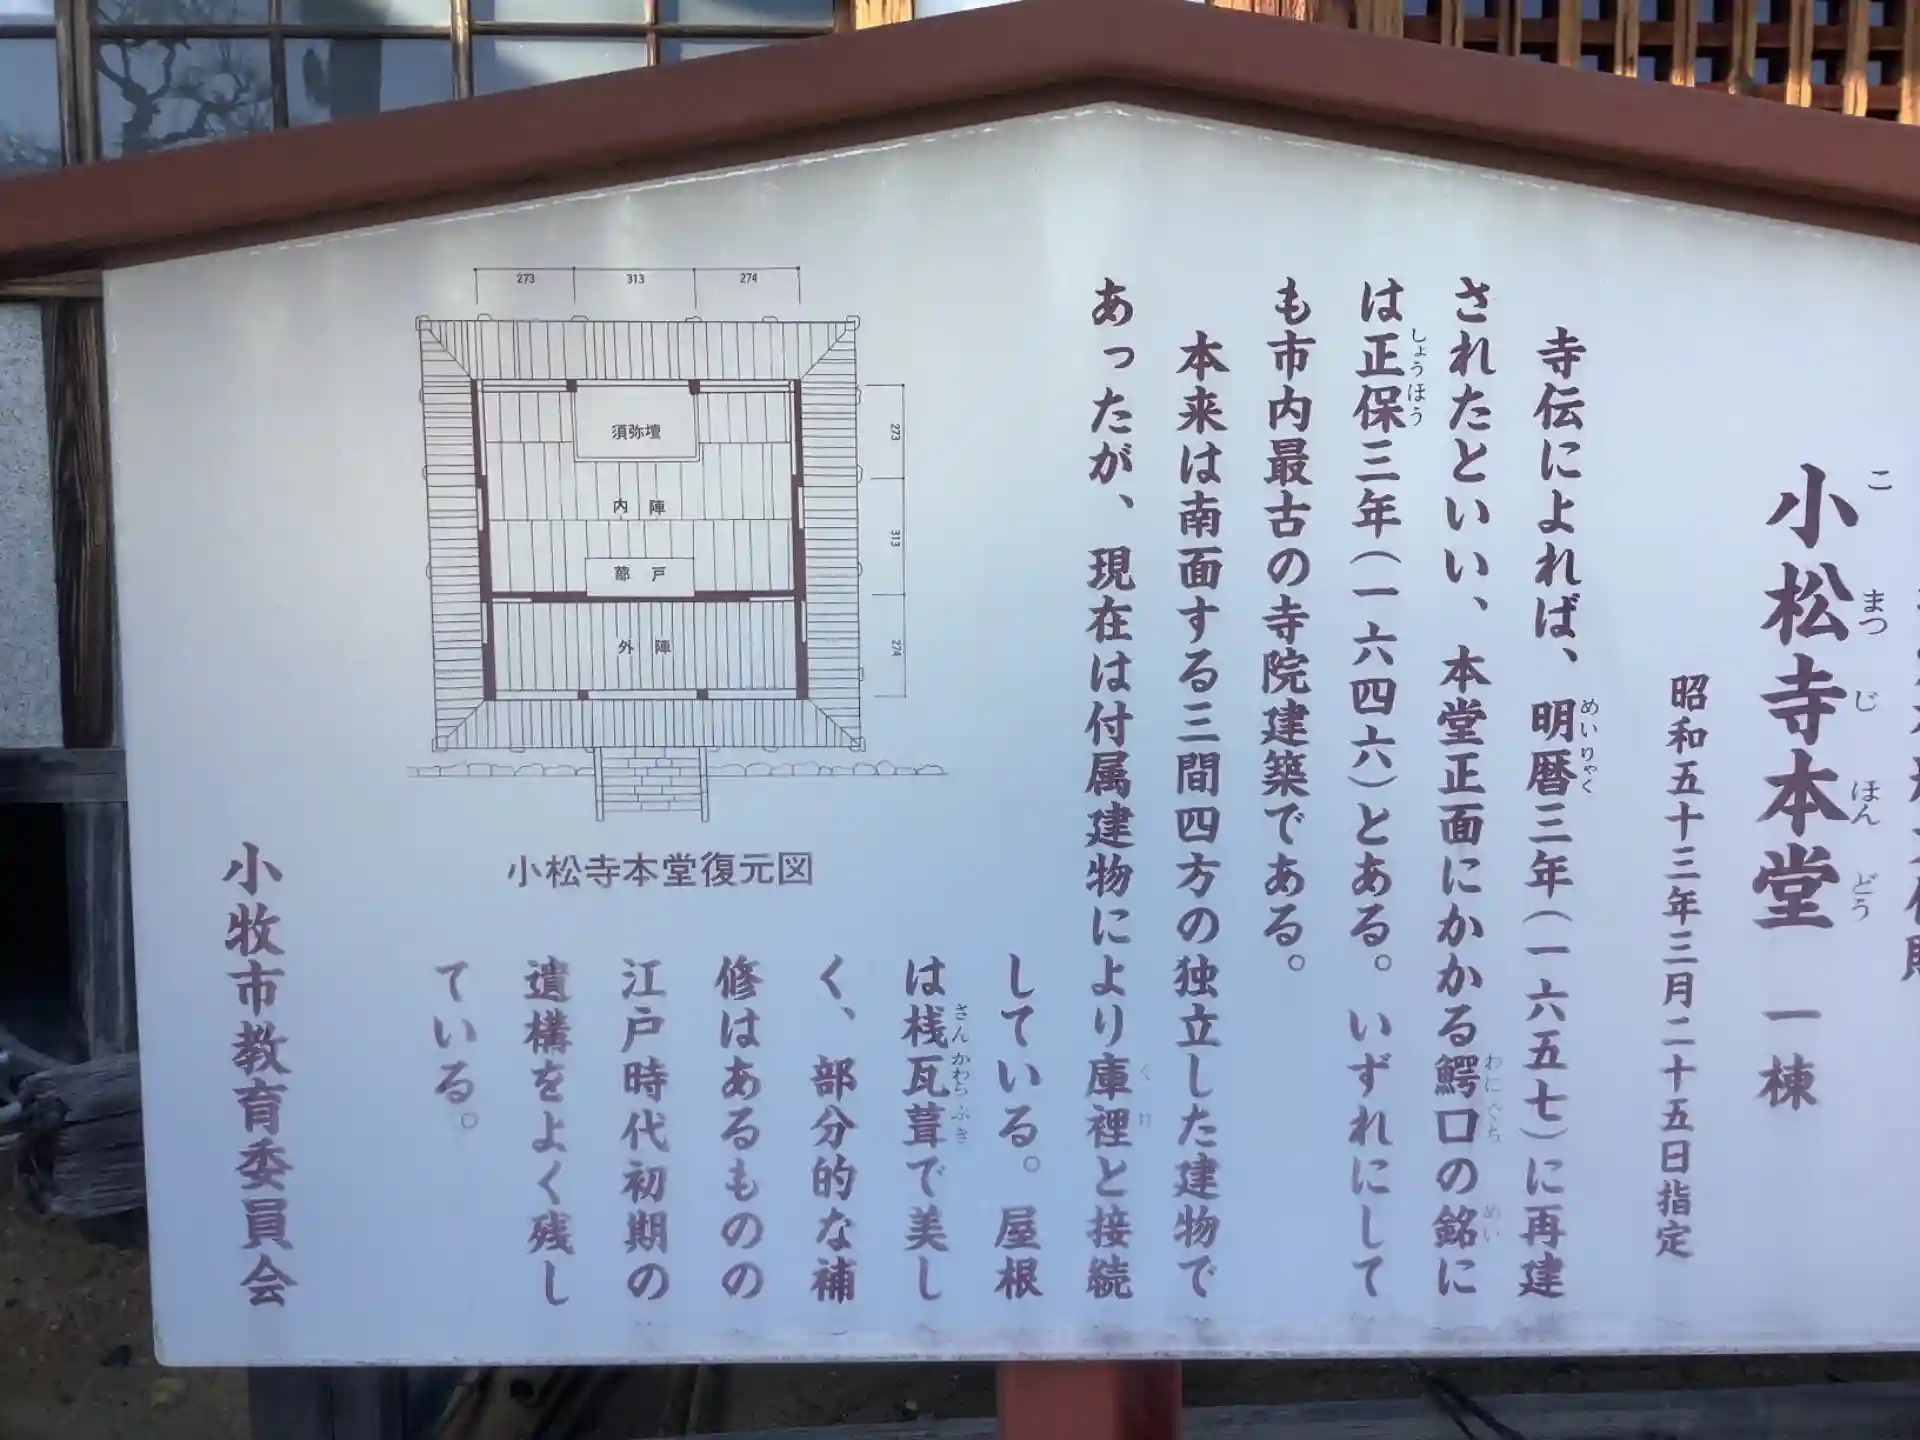 小松寺本堂 一棟
こまつじほんどう
昭和五十三年三月二十五日指定
寺伝によれば、明暦三年(一六五七)に再建
めいりゃく
されたといい、本堂正面にかかる鰐口の銘に
わにぐち
めい
は正保三年(一六四六)とある。いずれにして
しょうほう
も市内最古の寺院建築である。
本来は南面する三間四方の独立した建物で
あったが、現在は付属建物により庫裡と接続
くり
している。屋根
は桟瓦葺で美し
さんかわらぶき
く、部分的な補
修はあるものの
江戸時代初期の
遺構をよく残し
ている。
273
313
274
須弥壇
内陣
蔀戸
外陣
273
313
274
小松寺本堂復元図
小牧市教育委員会